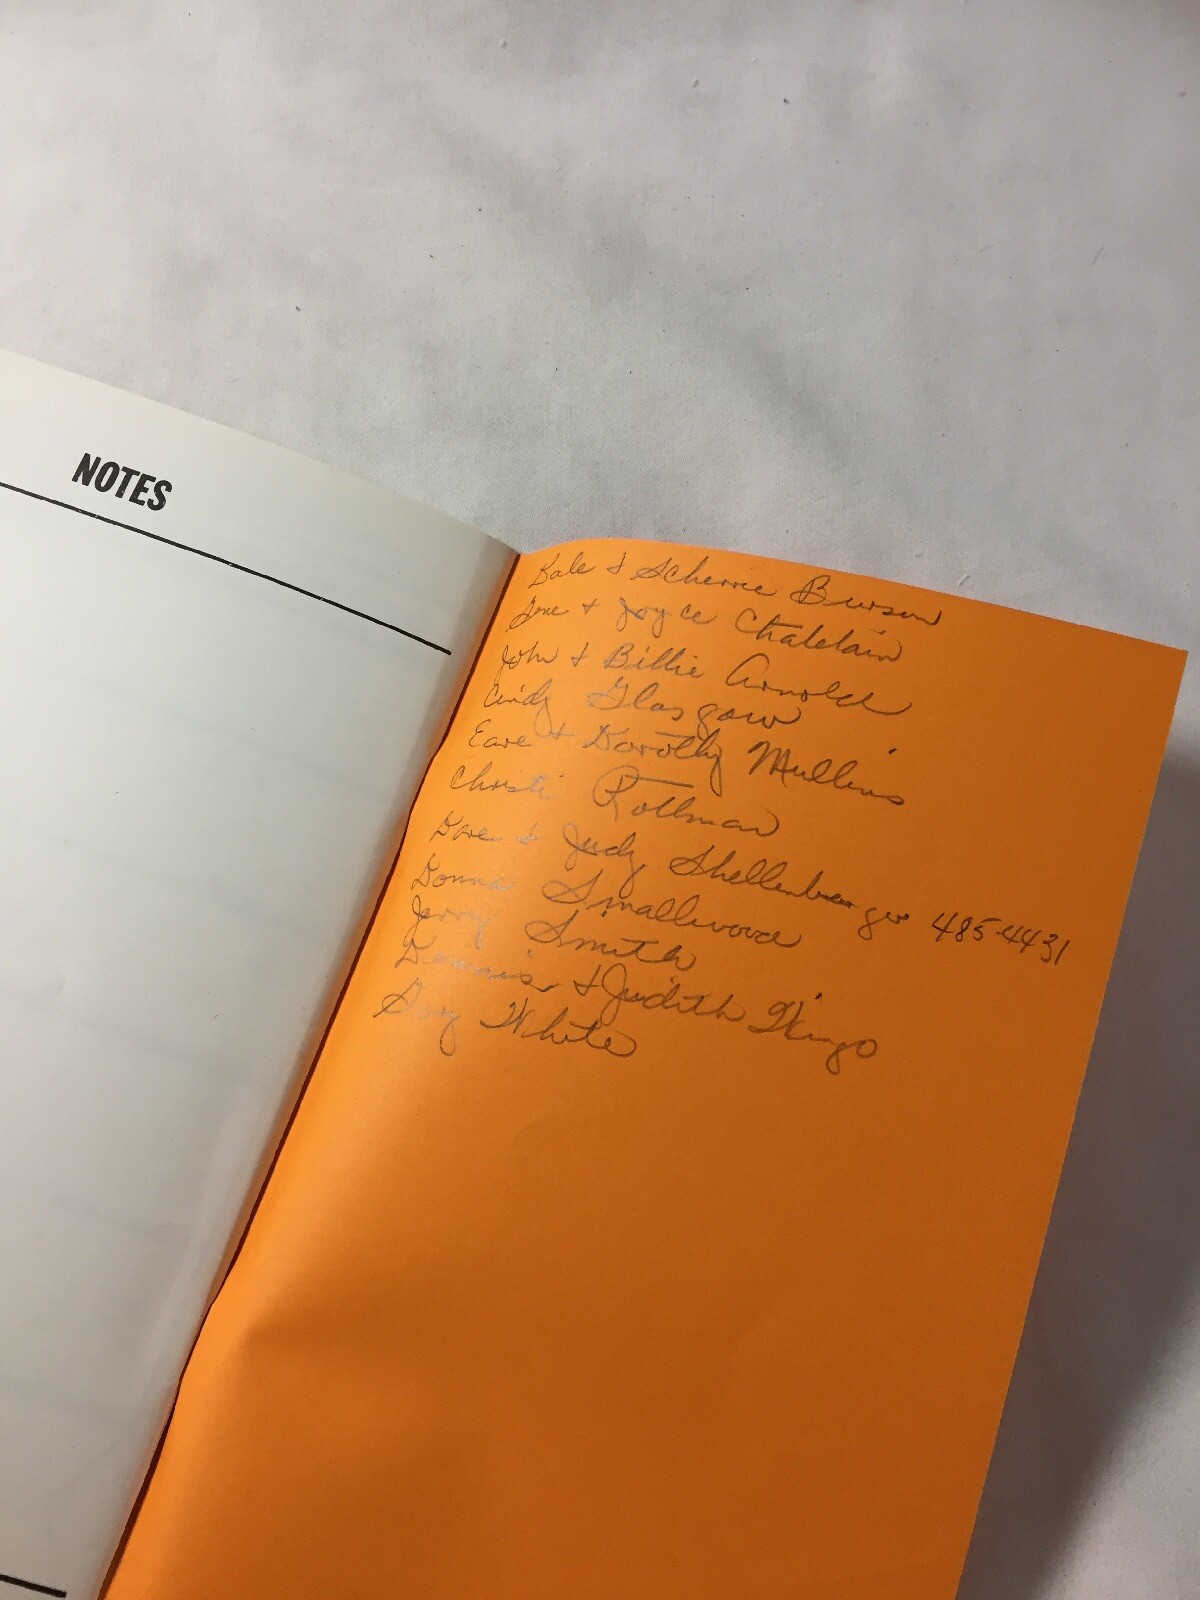 NOTES
Dale & Scherrie Burson
Gene + Joyce Chatelain
John & Billie Arnold
Cindy Glasgow
Earl & Dorothy Mullins
Christi Rollman
Dave & Judy Shellenbarger 485-4431
Donna Smallwood
Jerry Smith
Dennis & Judith Wingo
Gay White